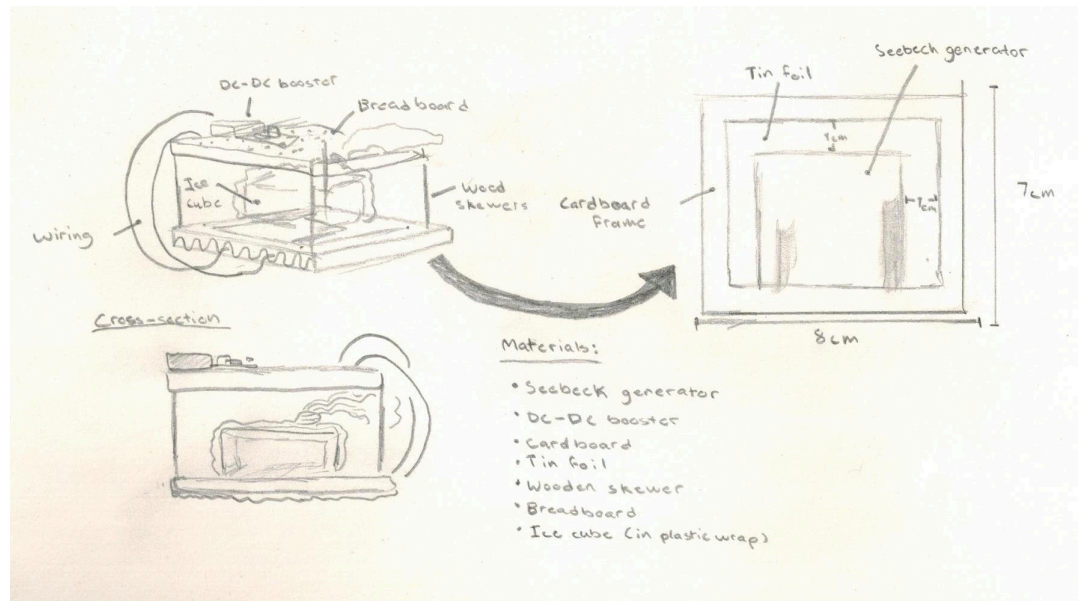 DC-DC booster
Breadboard
Ice
cube
Wood
skewers
Wiring
Seebeck generator
Tin foil
1cm
1cm
Cardboard
Frame
7cm
8cm
Cross-section
Materials:
• Seebeck generator
• DC-DC booster
• Cardboard
• Tin foil
• Wooden skewer
• Breadboard
• Ice cube (in plastic wrap)